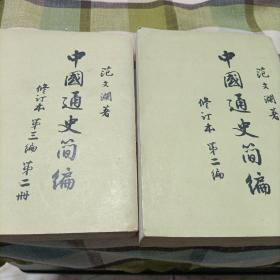 范文澜著
中國通史简编
修订本 第三编 第二册
范文澜著
中國通史简编
修订本 第二编